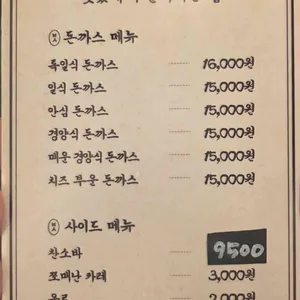 돈까스 메뉴
특일식 돈까스 ........ 16,000원
일식 돈까스 ........ 15,000원
안심 돈까스 ........ 15,000원
경양식 돈까스 ........ 15,000원
매운 경양식 돈까스 ........ 15,000원
치즈 부문 돈까스 ........ 15,000원
사이드 메뉴
찬소바 9500
쪼매난 카레 ........ 3,000원
음료 ........ 2,000원